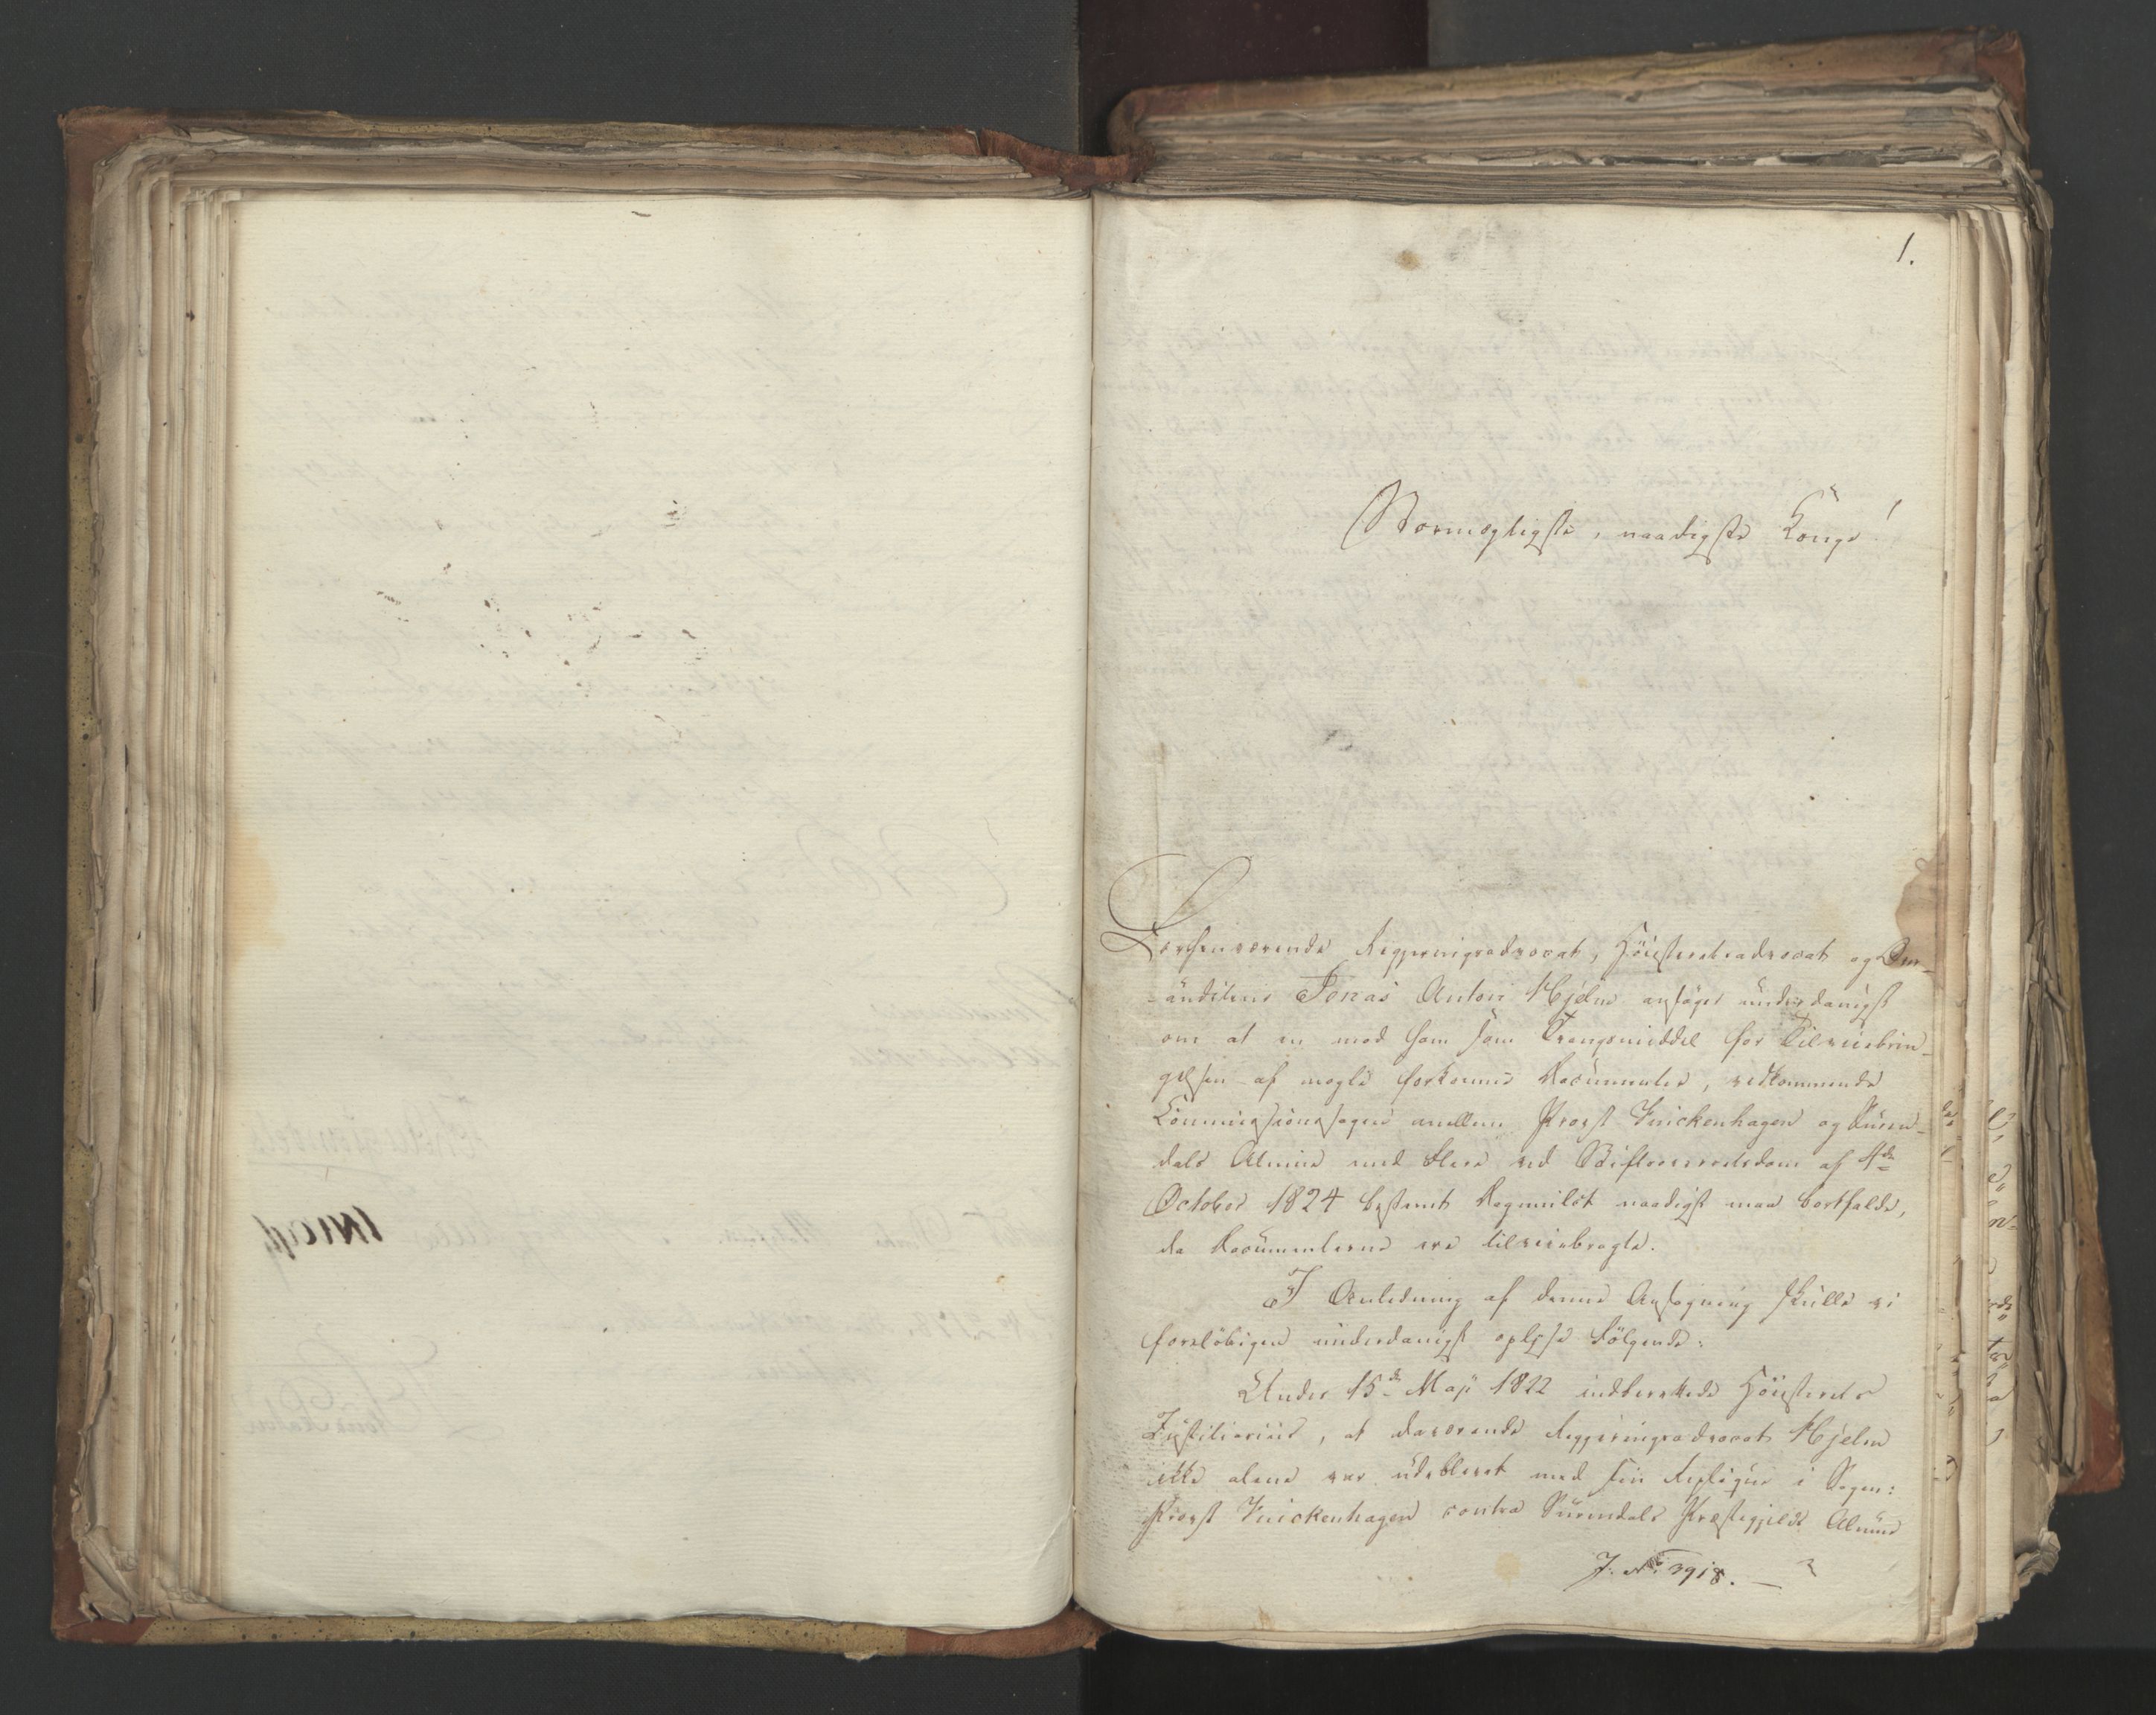 1.
Stormægtigste, naadigste Konge!
Forhenværende Regjeringsadvocat, Höiesteretsadvocat og
Jonas Anton Hjelm ansöger underdanigst
om at en mod ham som Tvangsmiddel for Tilveiebrin-
gelsen af nogle forkomne Documenter, vedkommende
Commissionssagen mellem Provst Finckenhagen og Suren-
dals Almue med flere ved Stiftsoverretsdom af 4de
October 1824 bestemt Dagmulct naadigst maa bortfalde,
da Documenterne ere tilveiebragte.
I Anledning af denne Ansögning skulle vi
forelöbigen underdanigst oplyse Fölgende:
Under 15de Maji 1822 indberettede Höiesterets
Justitiarius, at daværende Regjeringsadvocat Hjelm
ikke alene var udeblevet med sin Replique i Sagen:
Provst Finckenhagen contra Surendals Præstegjelds Almue
J. No 3918. —